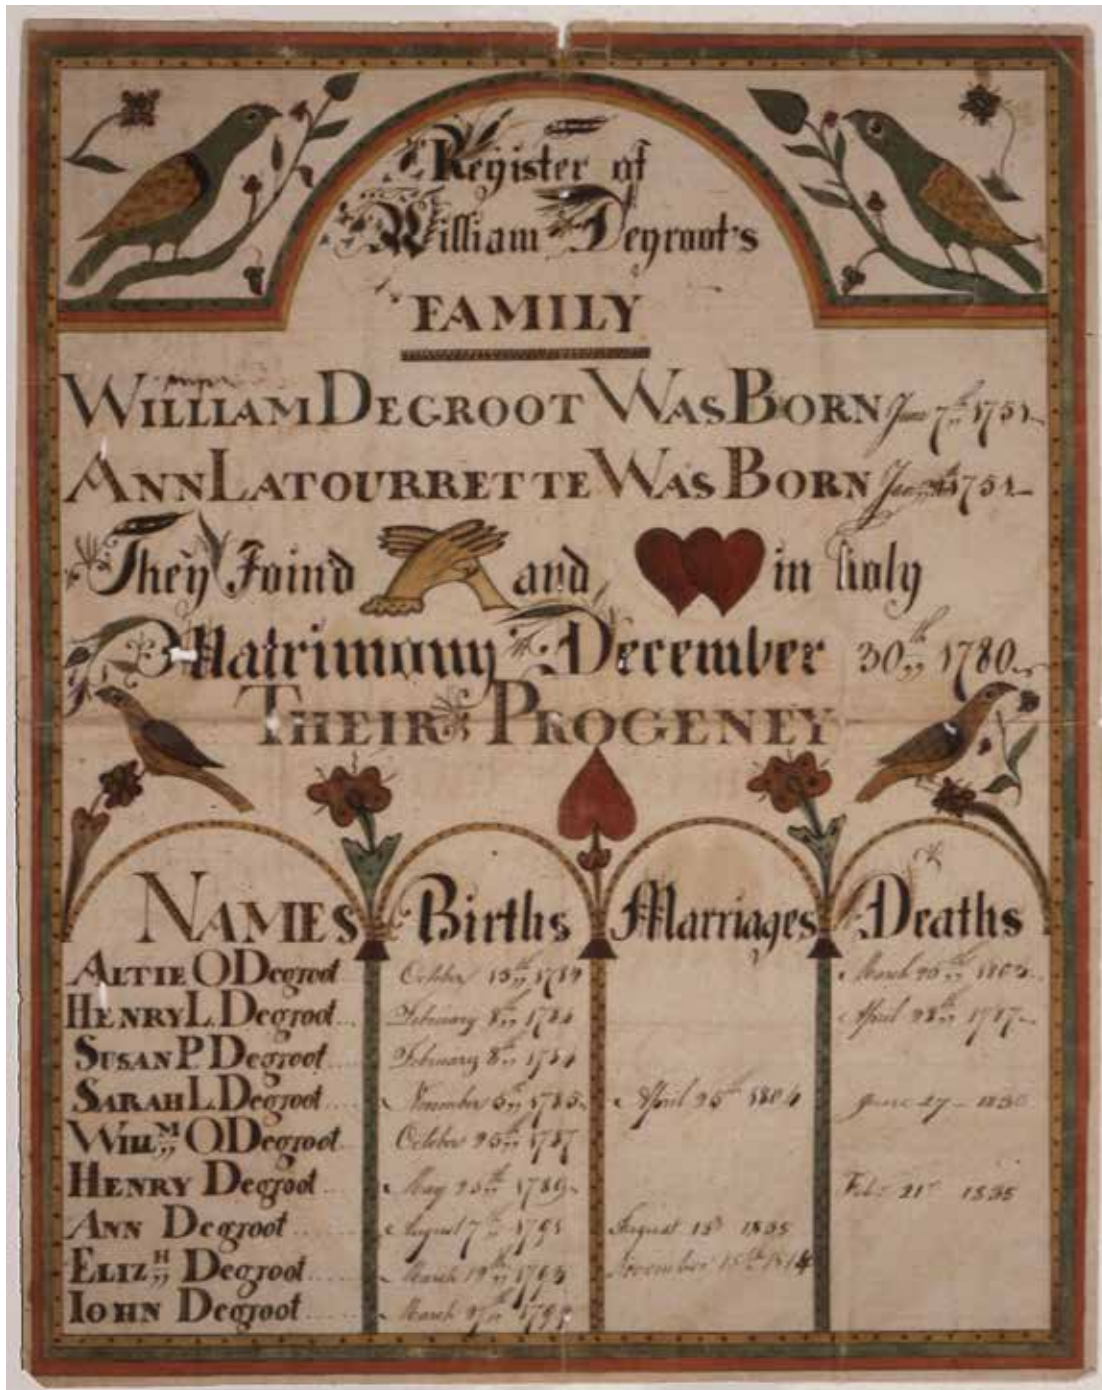 Register of
William Degroot's
FAMILY
WILLIAM DEGROOT WAS BORN June 7th 1751
ANN LATOURRETTE WAS BORN 1751
They Joind and in holy
Matrimony December 30th 1780
THEIR PROGENEY
NAMES Births Marriages Deaths
ALTIE O Degroot October 1803
HENRY L Degroot February 8th April 28th 1787
SUSAN P Degroot February 8th
SARAH L Degroot November 5th 1785 April 25th 1804 June 27
WILLM O Degroot October 25th 1787
HENRY Degroot May 25th 1789 21st 1835
ANN Degroot August 7th 1791 August 1835
ELIZH Degroot March 19th 1793 November 15th 1814
IOHN Degroot March 27th